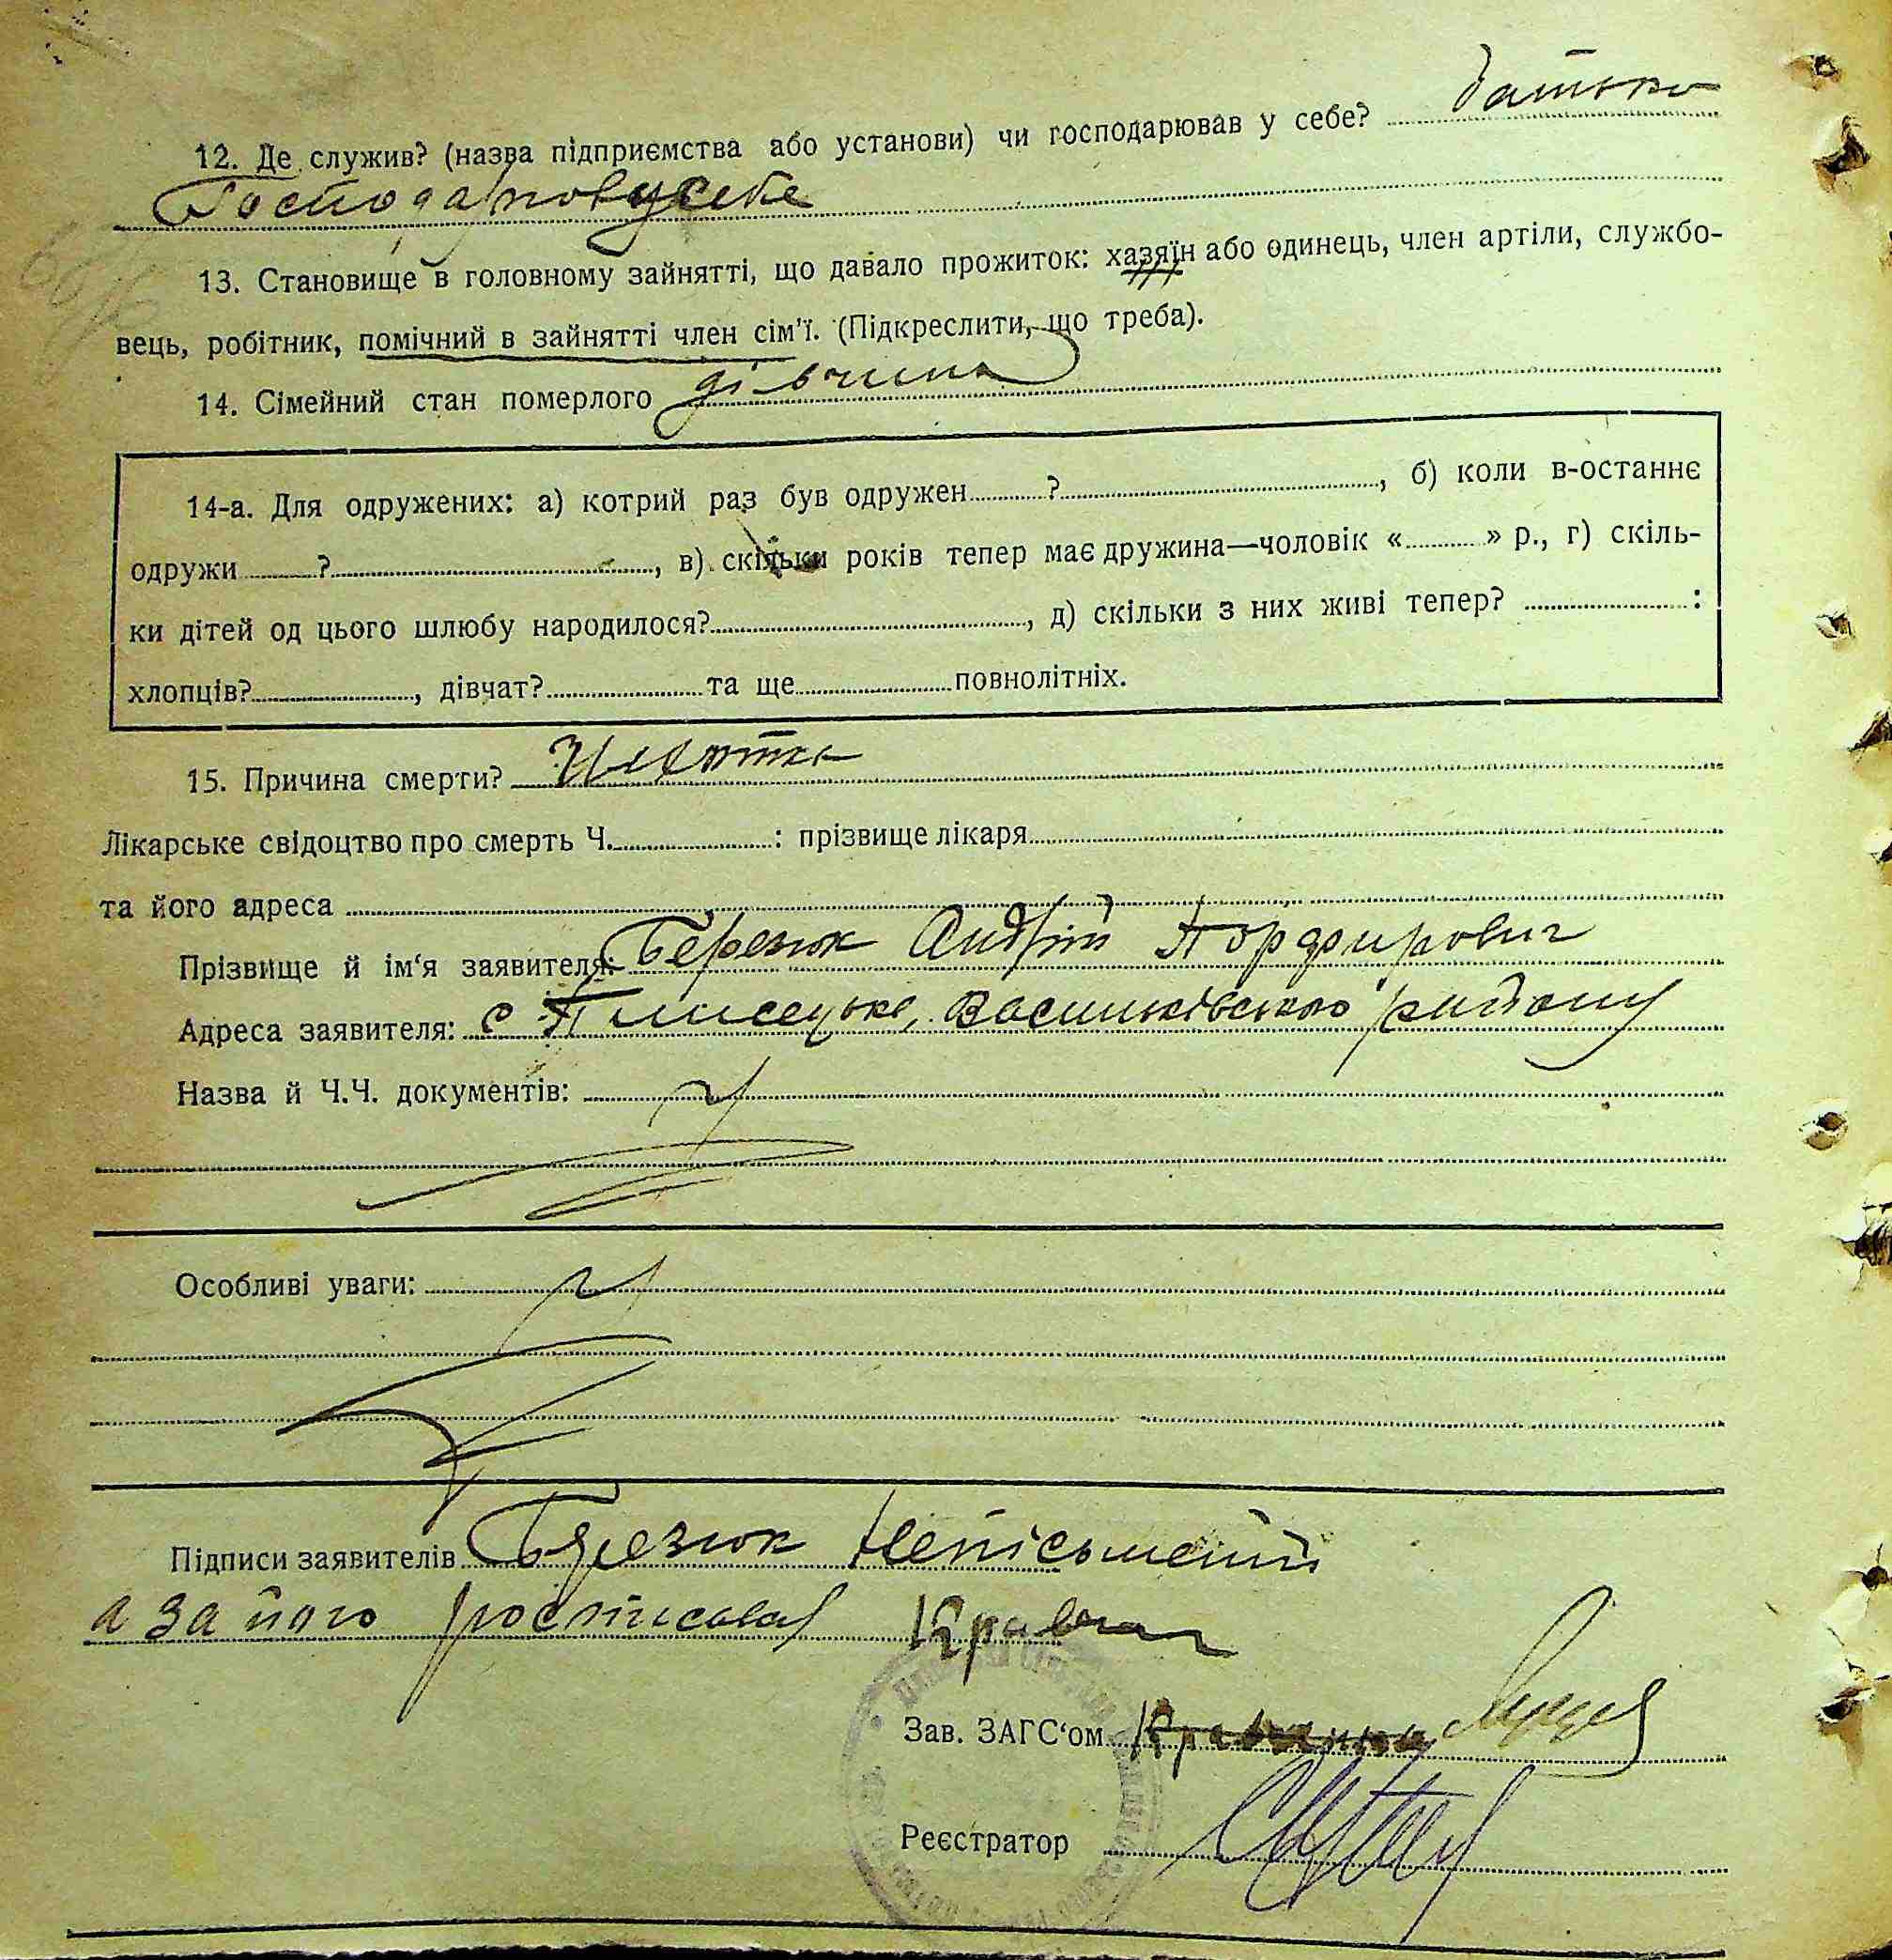 12. Де служив? (назва підприємства або установи) чи господарював у себе? батько
Господарював у себе
13. Становище в головному зайнятті, що давало прожиток: хазяїн або одинець, член артіли, службо-
вець, робітник, помічний в зайнятті член сім'ї. (Підкреслити, що треба).
14. Сімейний стан померлого дівчина
14-а. Для одружених: а) котрий раз був одружен ? , б) коли в-останнє
одружи ? , в) скільки років тепер має дружина—чоловік « » р., г) скіль-
ки дітей од цього шлюбу народилося? , д) скільки з них живі тепер? :
хлопців? , дівчат? та ще повнолітніх.
15. Причина смерти?
Лікарське свідоцтво про смерть Ч. : прізвище лікаря
та його адреса
Прізвище й ім'я заявителя: Березюк Андрій Порфирович
Адреса заявителя: с Плисецьке, Васильківського району
Назва й Ч.Ч. документів:
Особливі уваги:
Підписи заявителів Березюк Непісьменій
а за його росписався Кравчан
Зав. ЗАГС'ом
Реєстратор